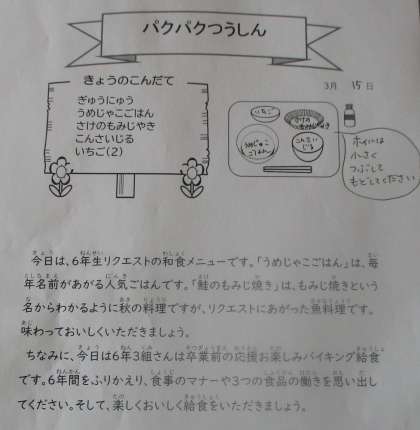 パクパクつうしん
3月 15日
きょうのこんだて
ぎゅうにゅう
うめじゃこごはん
さけのもみじやき
こんさいじる
いちご(2)
いちご
さけの
もみじやき
うめじゃこ
ごはん
こんさい
じる
ホイルは
小さく
つぶして
もどしてください
今日は、6年生リクエストの和食メニューです。「うめじゃこごはん」は、毎
年名前があがる人気ごはんです。「鮭のもみじ焼き」は、もみじ焼きという
名からわかるように秋の料理ですが、リクエストにあがった魚料理です。
味わっておいしくいただきましょう。
ちなみに、今日は6年3組さんは卒業前の応援お楽しみバイキング給食
です。6年間をふりかえり、食事のマナーや3つの食品の働きを思い出し
てください。そして、楽しくおいしく給食をいただきましょう。